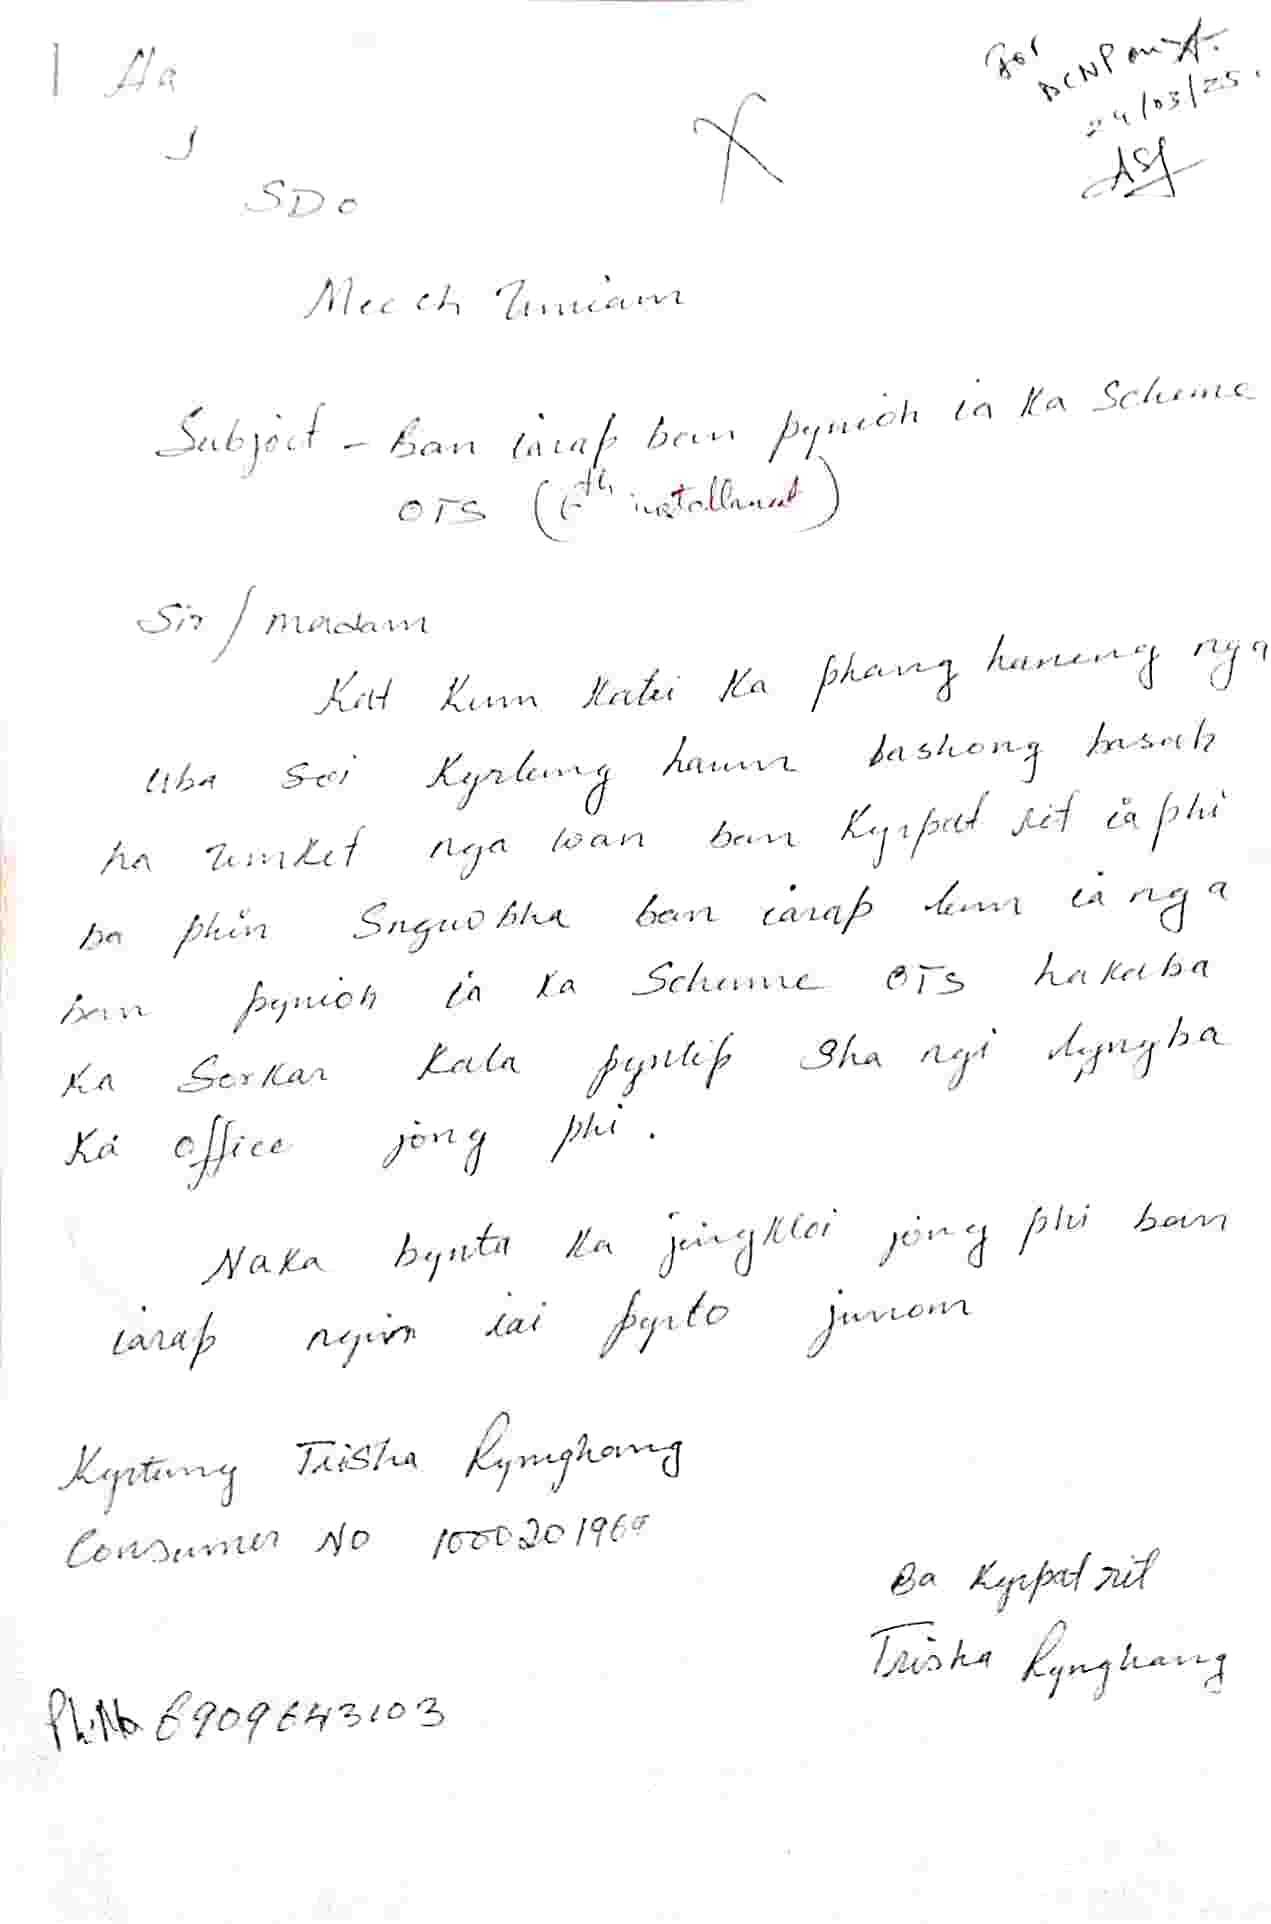 For
DCNP on A.
24/03/25.
Ha
SDO
Mecch Umiam
Subject - Ban iarap ban pynioh ia Ka Scheme
OTS (6th installment)
Sir / madam
Kat Kum Katei Ka phang haneng nga
Uba Soi Kyrteng harum bashong basah
ha Umket nga wan ban Kyrpat rit ia phi
ba phin Sngwbha ban iarap lem ia nga
ban pynioh ia Ka Scheme OTS hakaba
Ka Sorkar Kala pyntip Sha ngi lyngba
Ka office jong phi.
Naka bynta Ka jingkloi jong phi ban
iarap ngin iai pynto junom
Kyrteng Trisha Rynghang
Consumer No 1000201969
Ba Kyrpat rit
Trisha Rynghang
Ph.No 6909643103